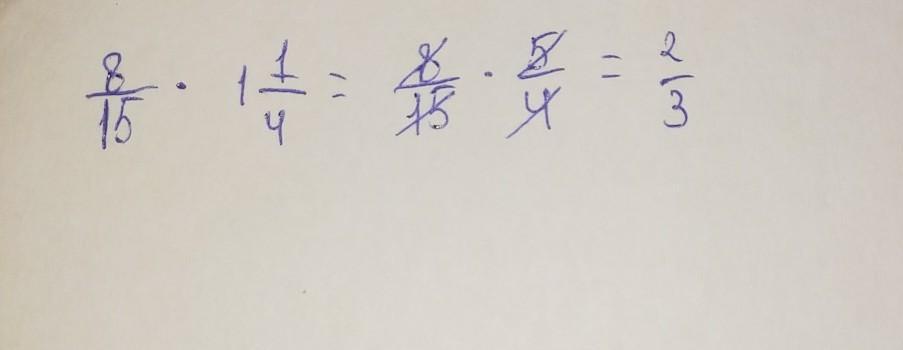 8/15 · 1 1/4 = 8/15 · 5/4 = 2/3